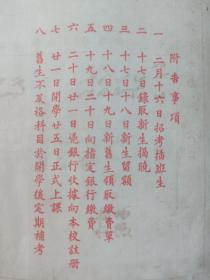 附告事項
一　二月十六日招考插班生
二　十七日錄取新生揭曉
三　十七日十八日新生留額
四　十八日十九日新舊生領取繳費單
五　十九日二十日向指定銀行繳費
六　二十日廿一日憑銀行收據向本校註册
七　廿一日開學廿五日正式上課
八　舊生不及格科目於開學後定期補考